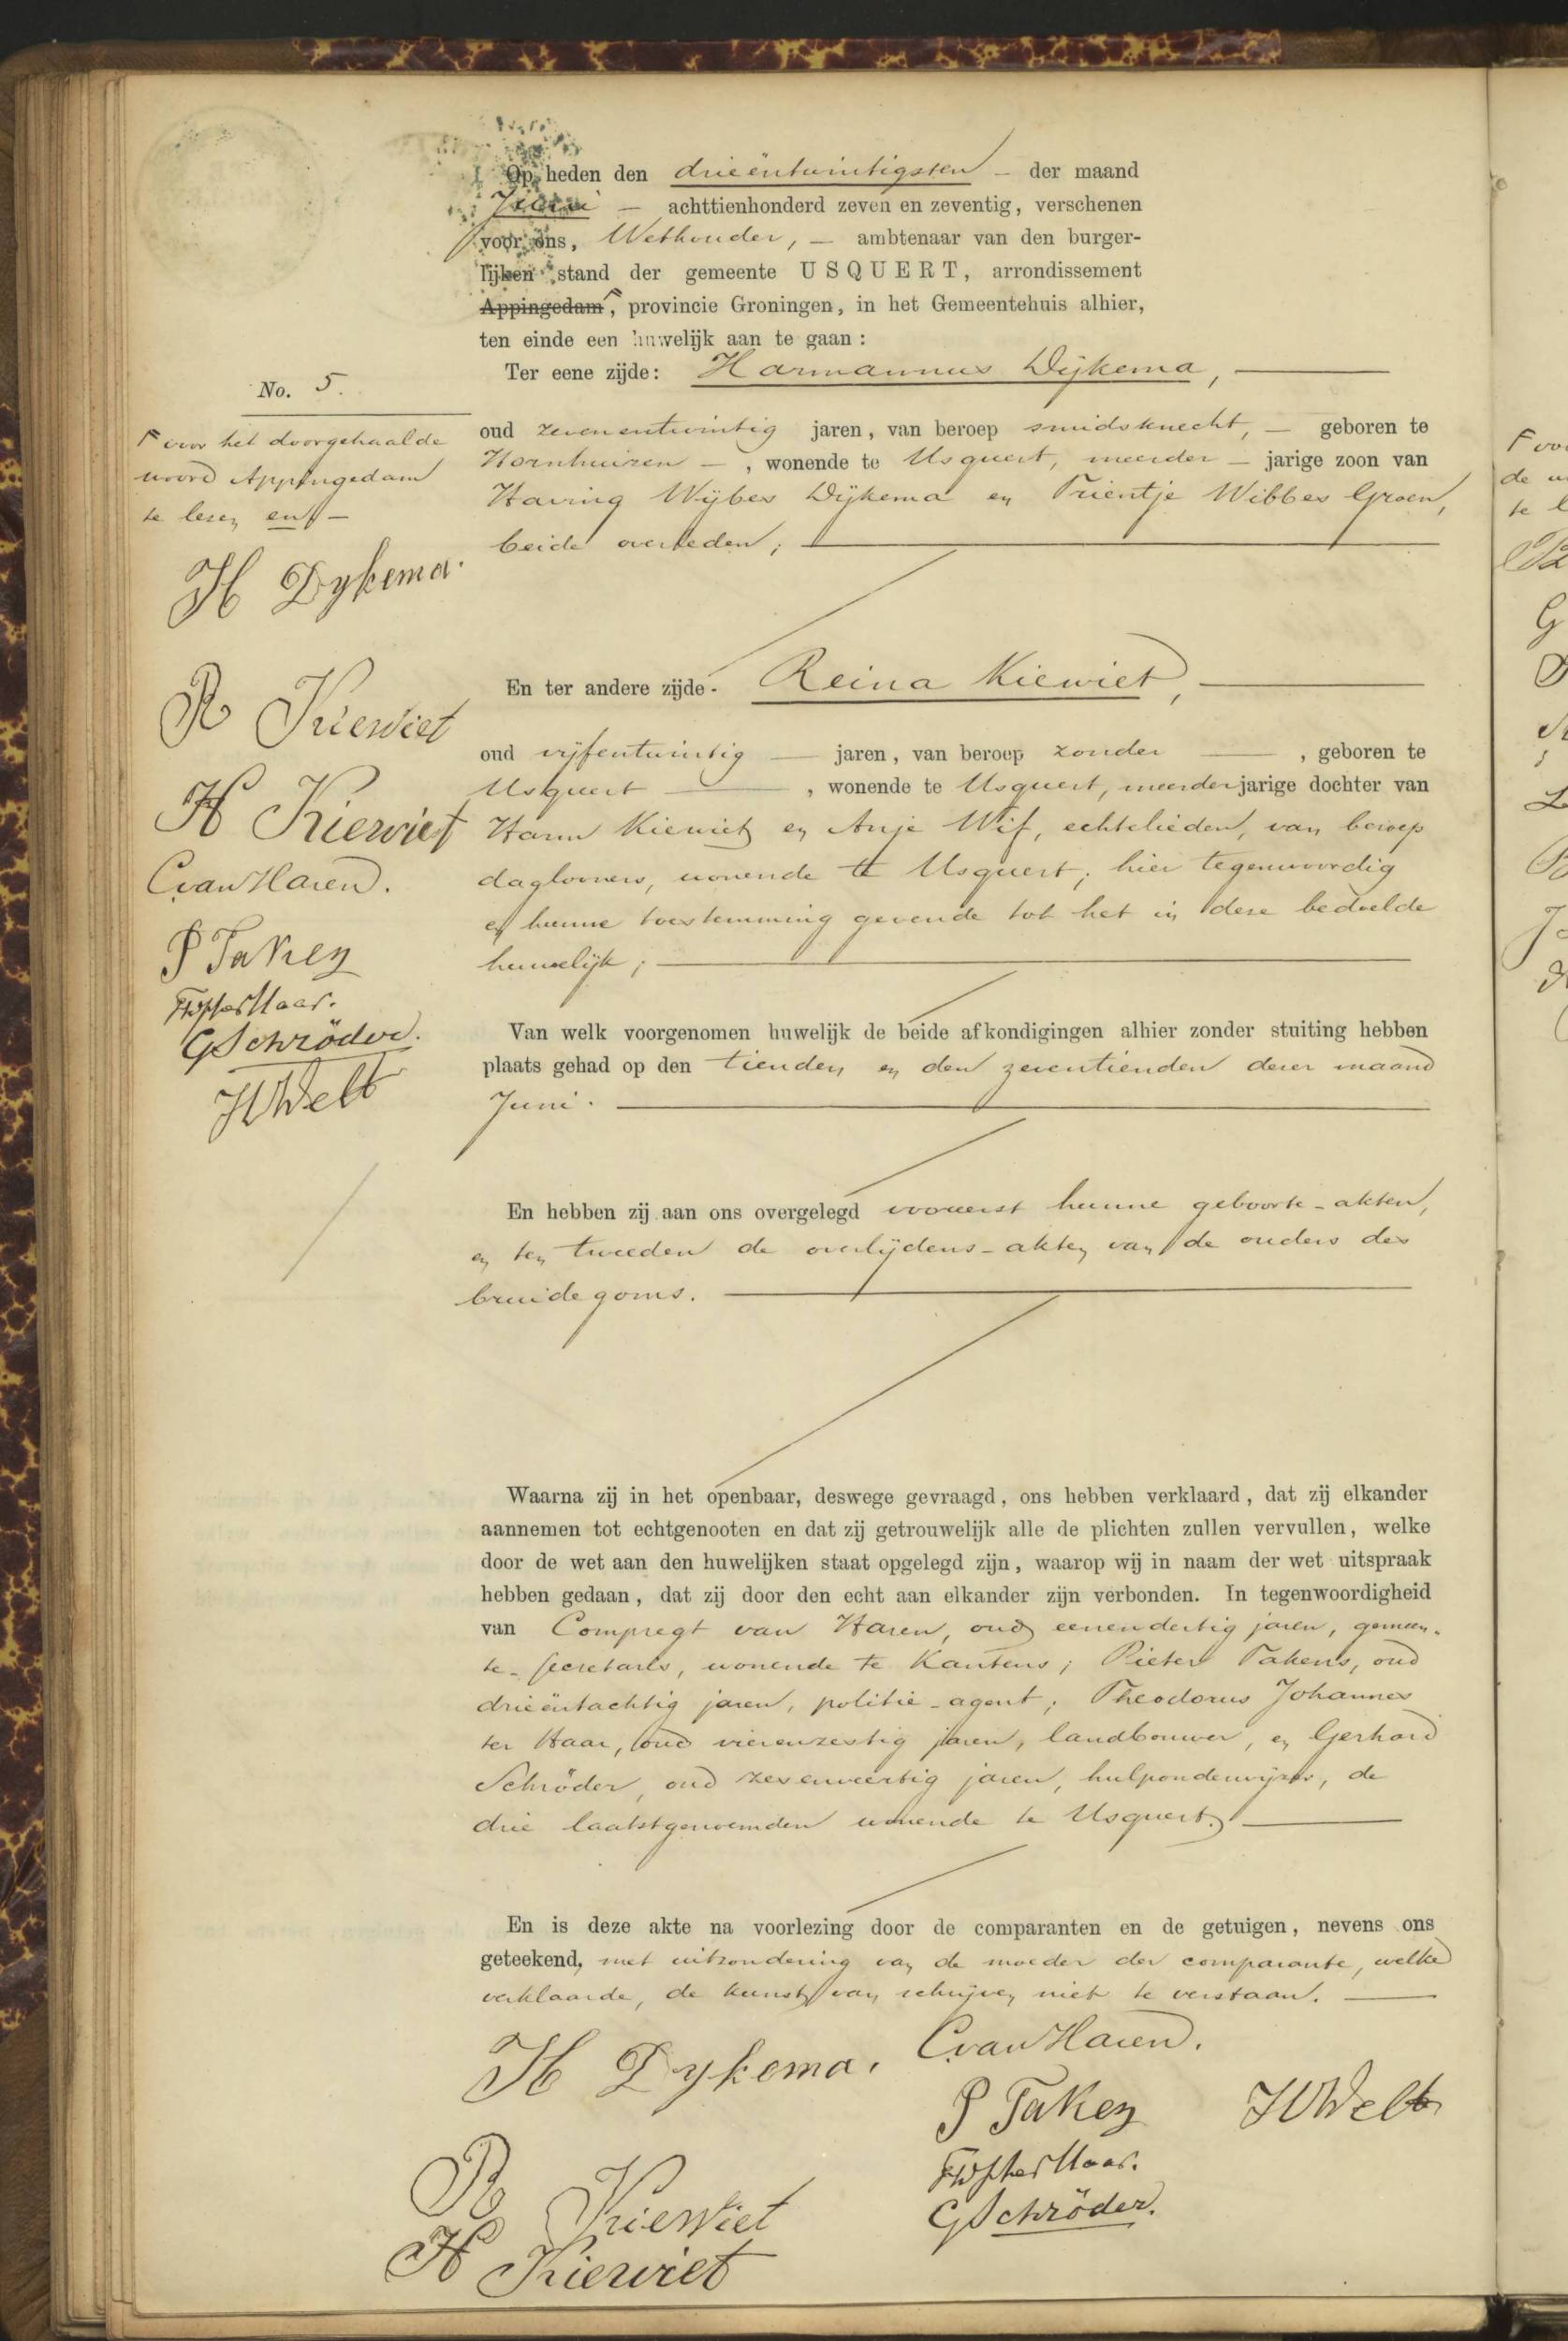 Op heden den drieëntwintigsten – der maand
Juni – achttienhonderd zeven en zeventig, verschenen
voor ons, Wethouder, – ambtenaar van den burger-
lijken stand der gemeente USQUERT, arrondissement
Appingedam, provincie Groningen, in het Gemeentehuis alhier,
ten einde een huwelijk aan te gaan :
Ter eene zijde: Harmannus Dijkema,
No. 5.
voor het doorgehaalde
woord Appingedam
te lezen en
H Dykema.
R Kiewiet
H Kiewiet
C. van Haren.
P Takens
ter Haar.
G Schröder.
oud zevenentwintig jaren, van beroep smidsknecht, – geboren te
Hornhuizen – , wonende te Usquert, meerder – jarige zoon van
Haring Wijbes Dijkema en Trientje Wibbes Groen,
beide overleden;
En ter andere zijde. Reina Kiewiet,
oud vijfentwintig – jaren, van beroep zonder – , geboren te
Usquert – , wonende te Usquert, meerderjarige dochter van
Harm Kiewiet en Anje Wif, echtelieden, van beroep
daglooners, wonende te Usquert; hier tegenwoordig
en hunne toestemming gevende tot het in deze bedoelde
huwelijk;
Van welk voorgenomen huwelijk de beide afkondigingen alhier zonder stuiting hebben
plaats gehad op den tienden en den zeventienden dezer maand
Juni.
En hebben zij aan ons overgelegd vooreerst hunne geboorte-akten,
en ten tweeden de overlijdens-akten van de ouders des
bruidegoms.
Waarna zij in het openbaar, deswege gevraagd, ons hebben verklaard, dat zij elkander
aannemen tot echtgenooten en dat zij getrouwelijk alle de plichten zullen vervullen, welke
door de wet aan den huwelijken staat opgelegd zijn, waarop wij in naam der wet uitspraak
hebben gedaan, dat zij door den echt aan elkander zijn verbonden. In tegenwoordigheid
van Compregt van Haren, oud eenendertig jaren, gemeen-
te-secretaris, wonende te Kantens; Pieter Takens, oud
drieëntachtig jaren, politie-agent; Theodorus Johannes
ter Haar, oud vierenzestig jaren, landbouwer, en Gerhard
Schröder, oud zesenveertig jaren, hulponderwijzer, de
drie laatstgenoemden wonende te Usquert.
En is deze akte na voorlezing door de comparanten en de getuigen, nevens ons
geteekend, met uitzondering van de moeder der comparante, welke
verklaarde, de kunst van schrijven niet te verstaan.
H Dykema.
C. van Haren.
P Takens
ter Haar.
G Schröder.
R Kiewiet
H Kiewiet